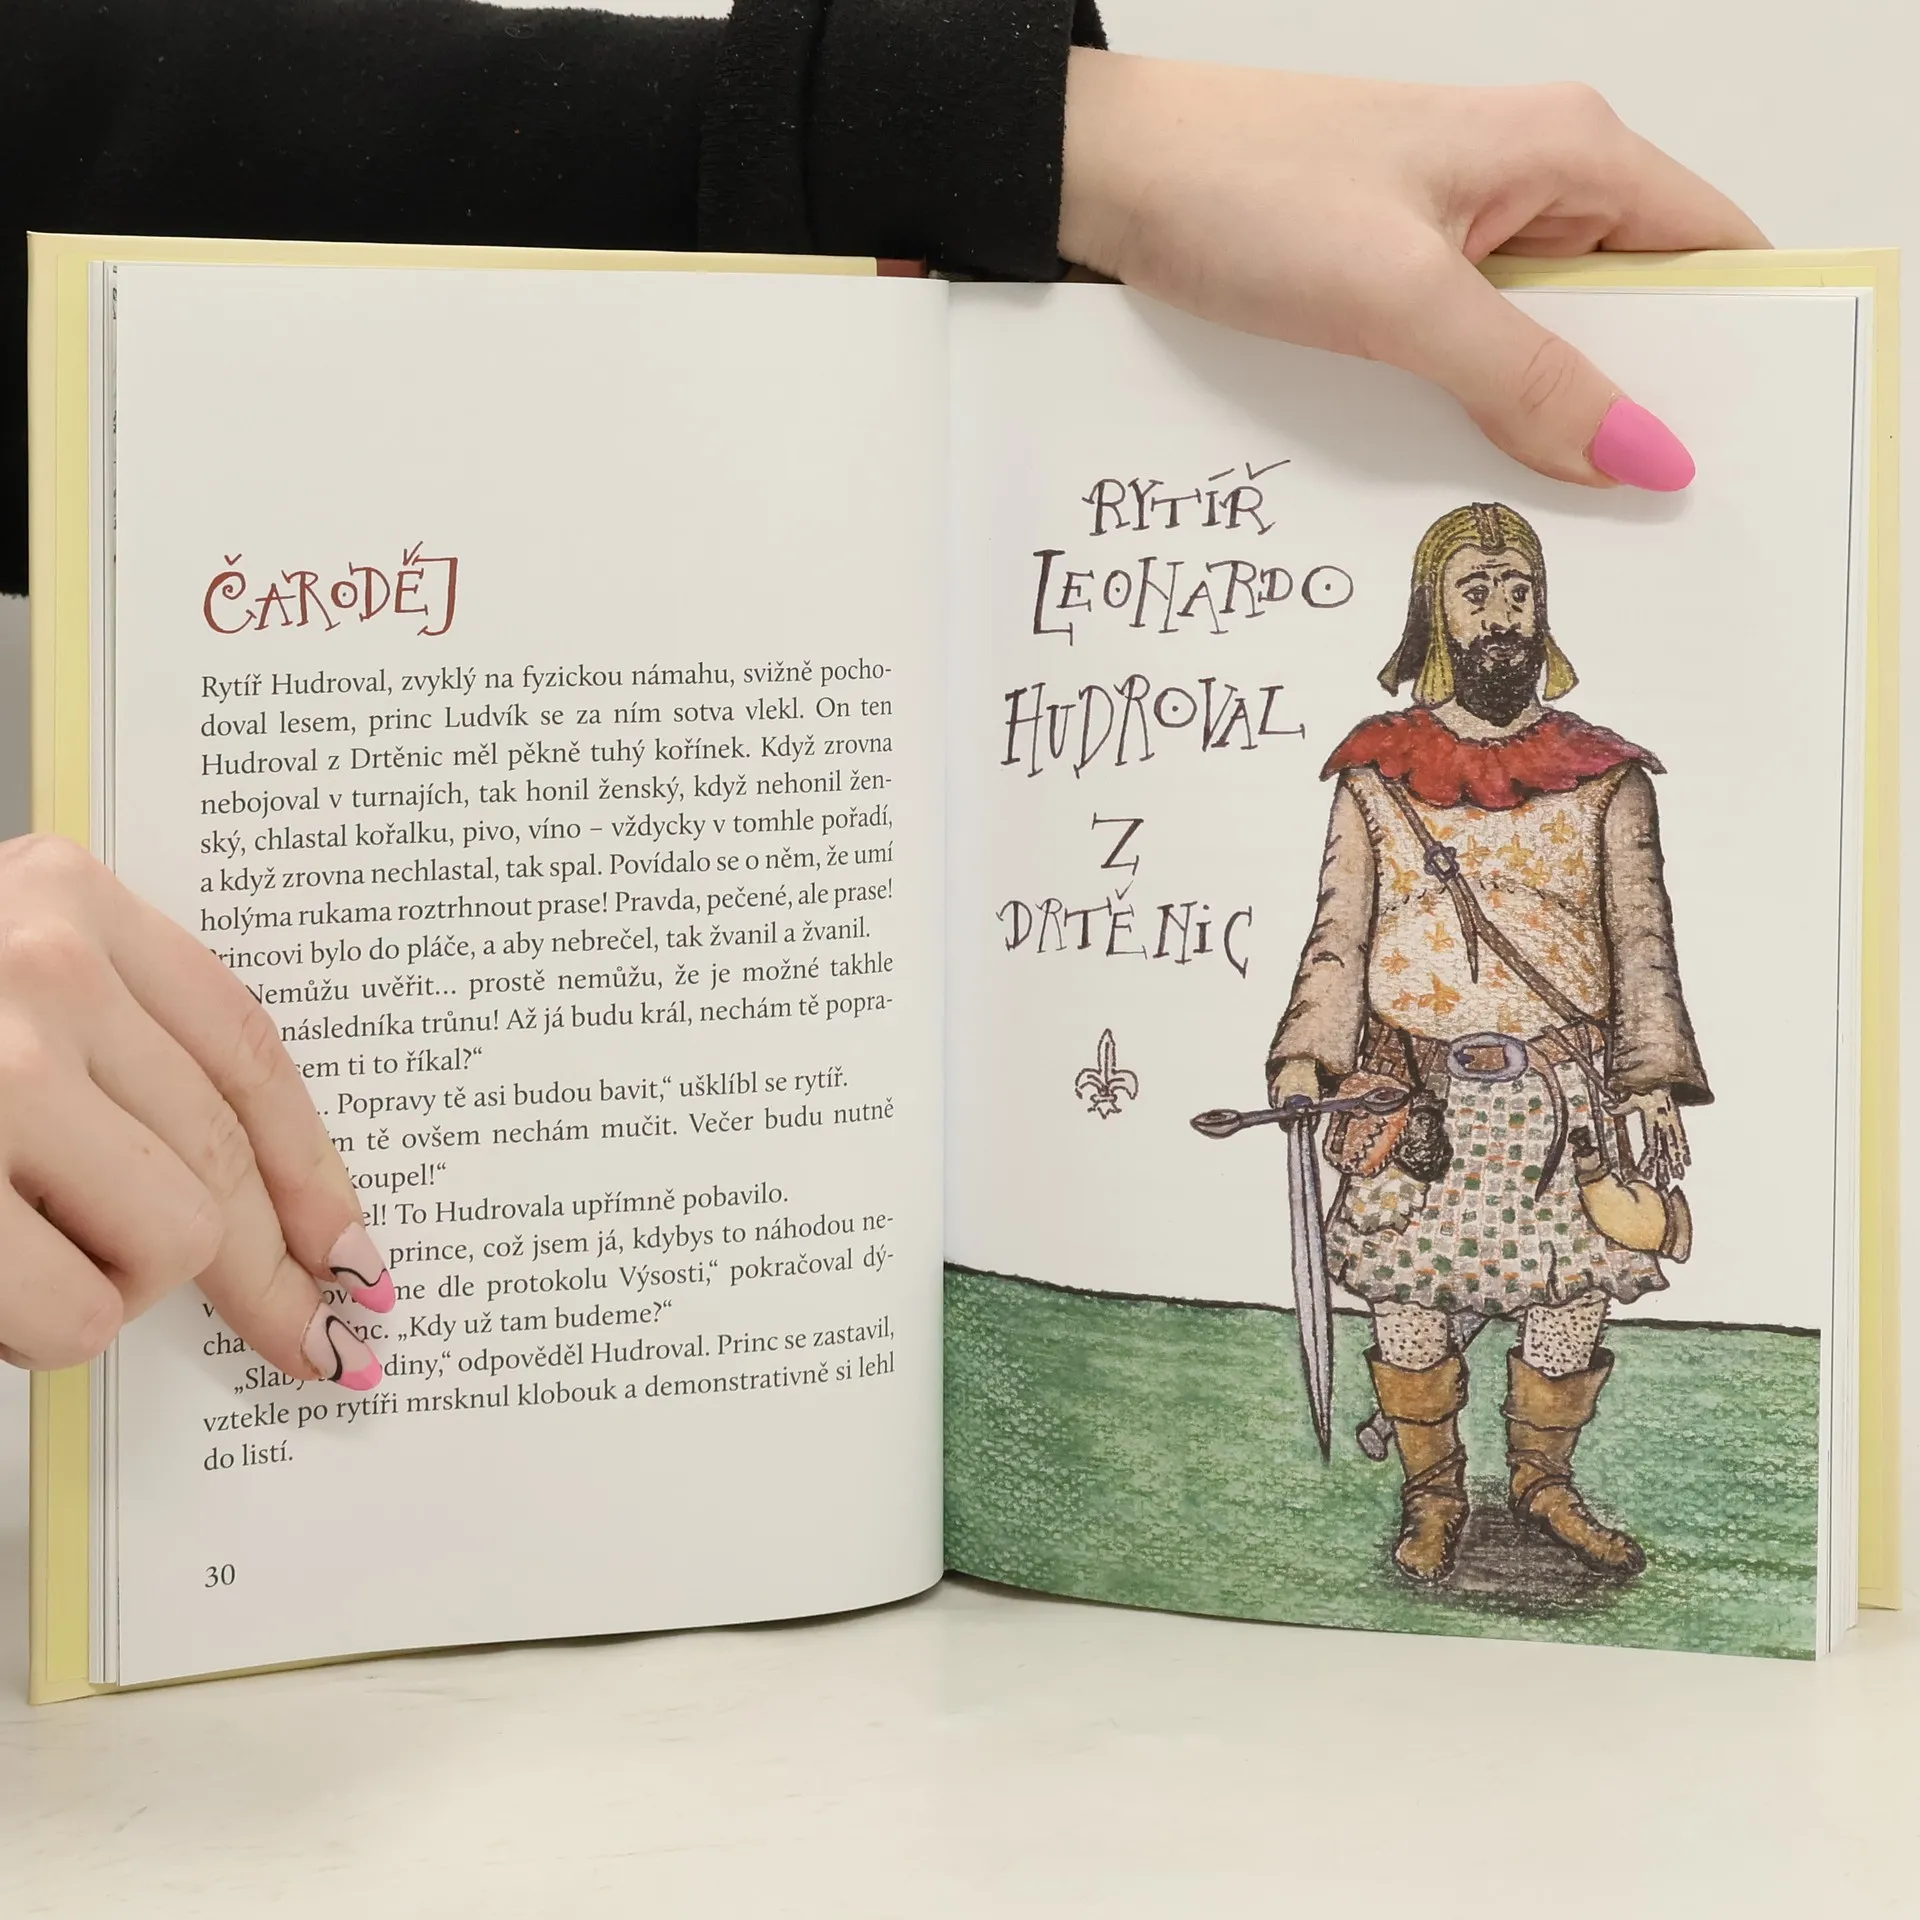 ČARODĚJ
Rytíř Hudroval, zvyklý na fyzickou námahu, svižně pocho-
doval lesem, princ Ludvík se za ním sotva vlekl. On ten
Hudroval z Drtěnic měl pěkně tuhý kořínek. Když zrovna
nebojoval v turnajích, tak honil ženský, když nehonil žen-
ský, chlastal kořalku, pivo, víno – vždycky v tomhle pořadí,
a když zrovna nechlastal, tak spal. Povídalo se o něm, že umí
holýma rukama roztrhnout prase! Pravda, pečené, ale prase!
Princovi bylo do pláče, a aby nebrečel, tak žvanil a žvanil.
Nemůžu uvěřit... prostě nemůžu, že je možné takhle
následníka trůnu! Až já budu král, nechám tě popra-
ti to říkal?“
Popravy tě asi budou bavit,“ ušklíbl se rytíř.
tě ovšem nechám mučit. Večer budu nutně
koupel!“
To Hudrovala upřímně pobavilo.
prince, což jsem já, kdybys to náhodou ne-
dle protokolu Výsosti,“ pokračoval dý-
„Kdy už tam budeme?“
odpověděl Hudroval. Princ se zastavil,
vztekle po rytíři mrsknul klobouk a demonstrativně si lehl
do listí.
30
RYTÍŘ
LEONARDO
HUDROVAL
Z
DRTĚNIC